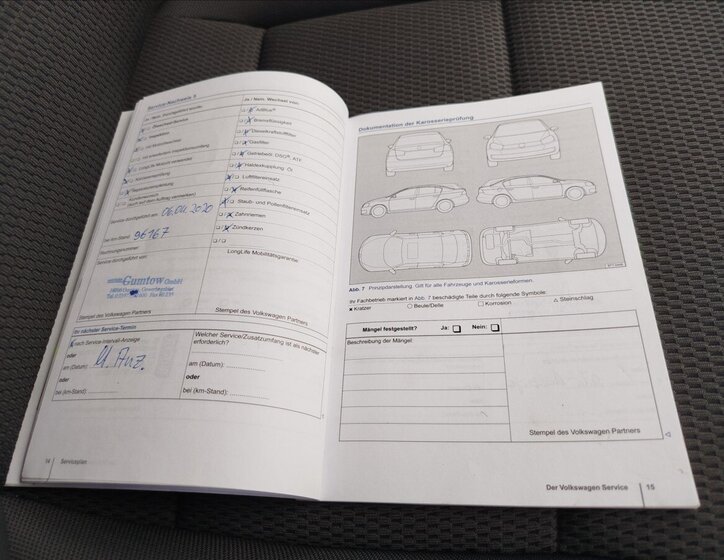 Service-Nachweis 5
Ja / Nein: Wechsel von:
AdBlue®
Bremsflüssigkeit
Dieselkraftstofffilter
Gasfilter
Getriebeöl, DSG®, ATF
Haldexkupplung - Öl
Luftfiltereinsatz
Reifenfüllflasche
Staub- und Pollenfiltereinsatz
Zahnriemen
Zündkerzen
Service durchgeführt am: 06.04.2020
bei km-Stand: 96167
Rechnungsnummer:
Service durchgeführt von:
LongLife Mobilitätsgarantie
Gumtow GmbH
Stempel des Volkswagen Partners
Stempel des Volkswagen Partners
Ihr nächster Service-Termin
nach Service-Intervall-Anzeige
oder
am (Datum):
oder
bei (km-Stand):
Welcher Service/Zusatzumfang ist als nächster
erforderlich?
am (Datum):
oder
bei (km-Stand):
14 Serviceplan
Dokumentation der Karosserieprüfung
Abb. 7 Prinzipdarstellung: Gilt für alle Fahrzeuge und Karosserieformen.
Ihr Fachbetrieb markiert in Abb. 7 beschädigte Teile durch folgende Symbole:
x Kratzer ○ Beule/Delle □ Korrosion △ Steinschlag
Mängel festgestellt? Ja: Nein:
Beschreibung der Mängel:
Stempel des Volkswagen Partners
Der Volkswagen Service 15